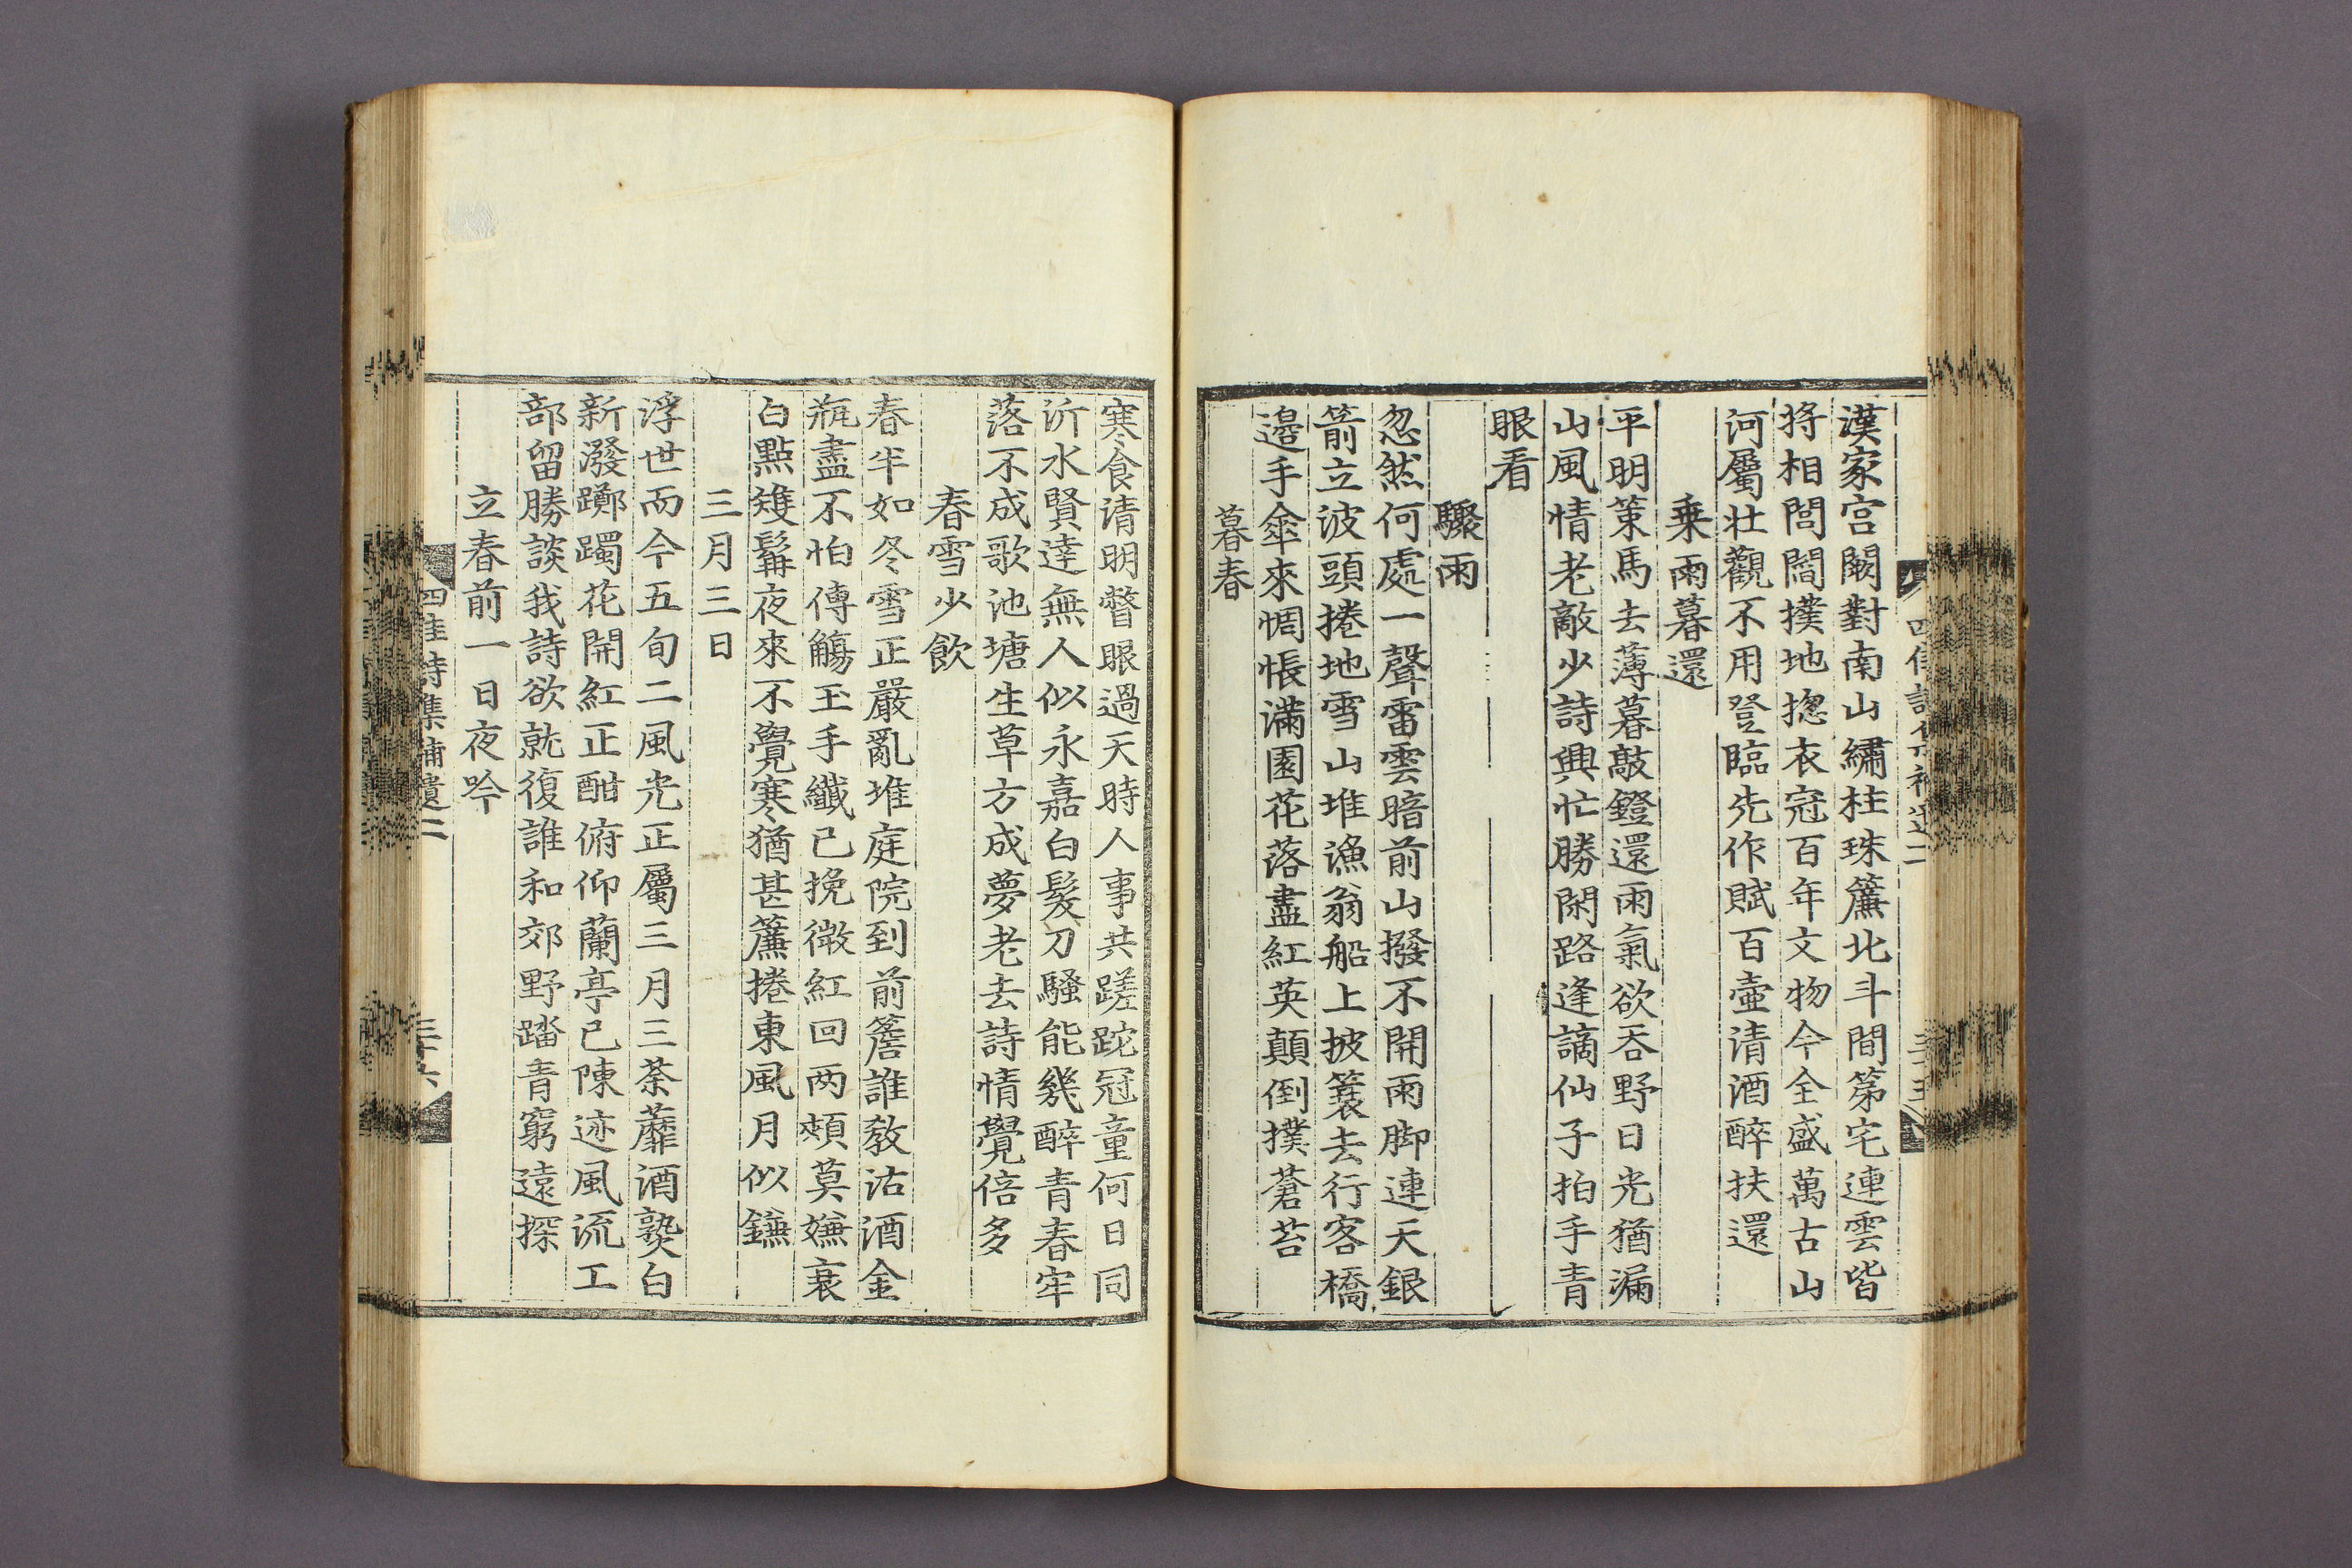 漢家宮闕對南山繡柱珠簾北斗間第宅連雲皆
將相閭閻撲地揔衣冠百年文物今全盛萬古山
河屬壯觀不用登臨先作賦百壺清酒醉扶還
乗雨暮還
平明策馬去薄暮敲鐙還雨氣欲吞野日光猶漏
山風情老敵少詩興忙勝閑路逢謫仙子拍手青
眼看
驟雨
忽然何處一聲雷雲暗前山撥不開雨脚連天銀
箭立波頭捲地雪山堆漁翁船上披簑去行客橋
邉手傘來惆悵滿園花落盡紅英顛倒撲蒼苔
暮春
寒食清明瞥眼過天時人事共蹉跎冠童何日同
沂水賢逹無人似永嘉白髮刀騷能幾醉青春牢
落不成歌池塘生草方成夢老去詩情覺倍多
春雪少飲
春半如冬雪正嚴亂堆庭院到前簷誰敎沽酒金
甁盡不怕傳觴玉手纖已挽微紅回两頰莫嫌衰
白點雙髯夜來不覺寒猶甚簾捲東風月似鎌
三月三日
浮世而今五旬二風光正屬三月三荼蘼酒熟白
新潑躑躅花開紅正酣俯仰蘭亭已陳迹風流工
部留勝談我詩欲就復誰和郊野踏青窮遠探
立春前一日夜吟
四佳詩集補遺二
三十六